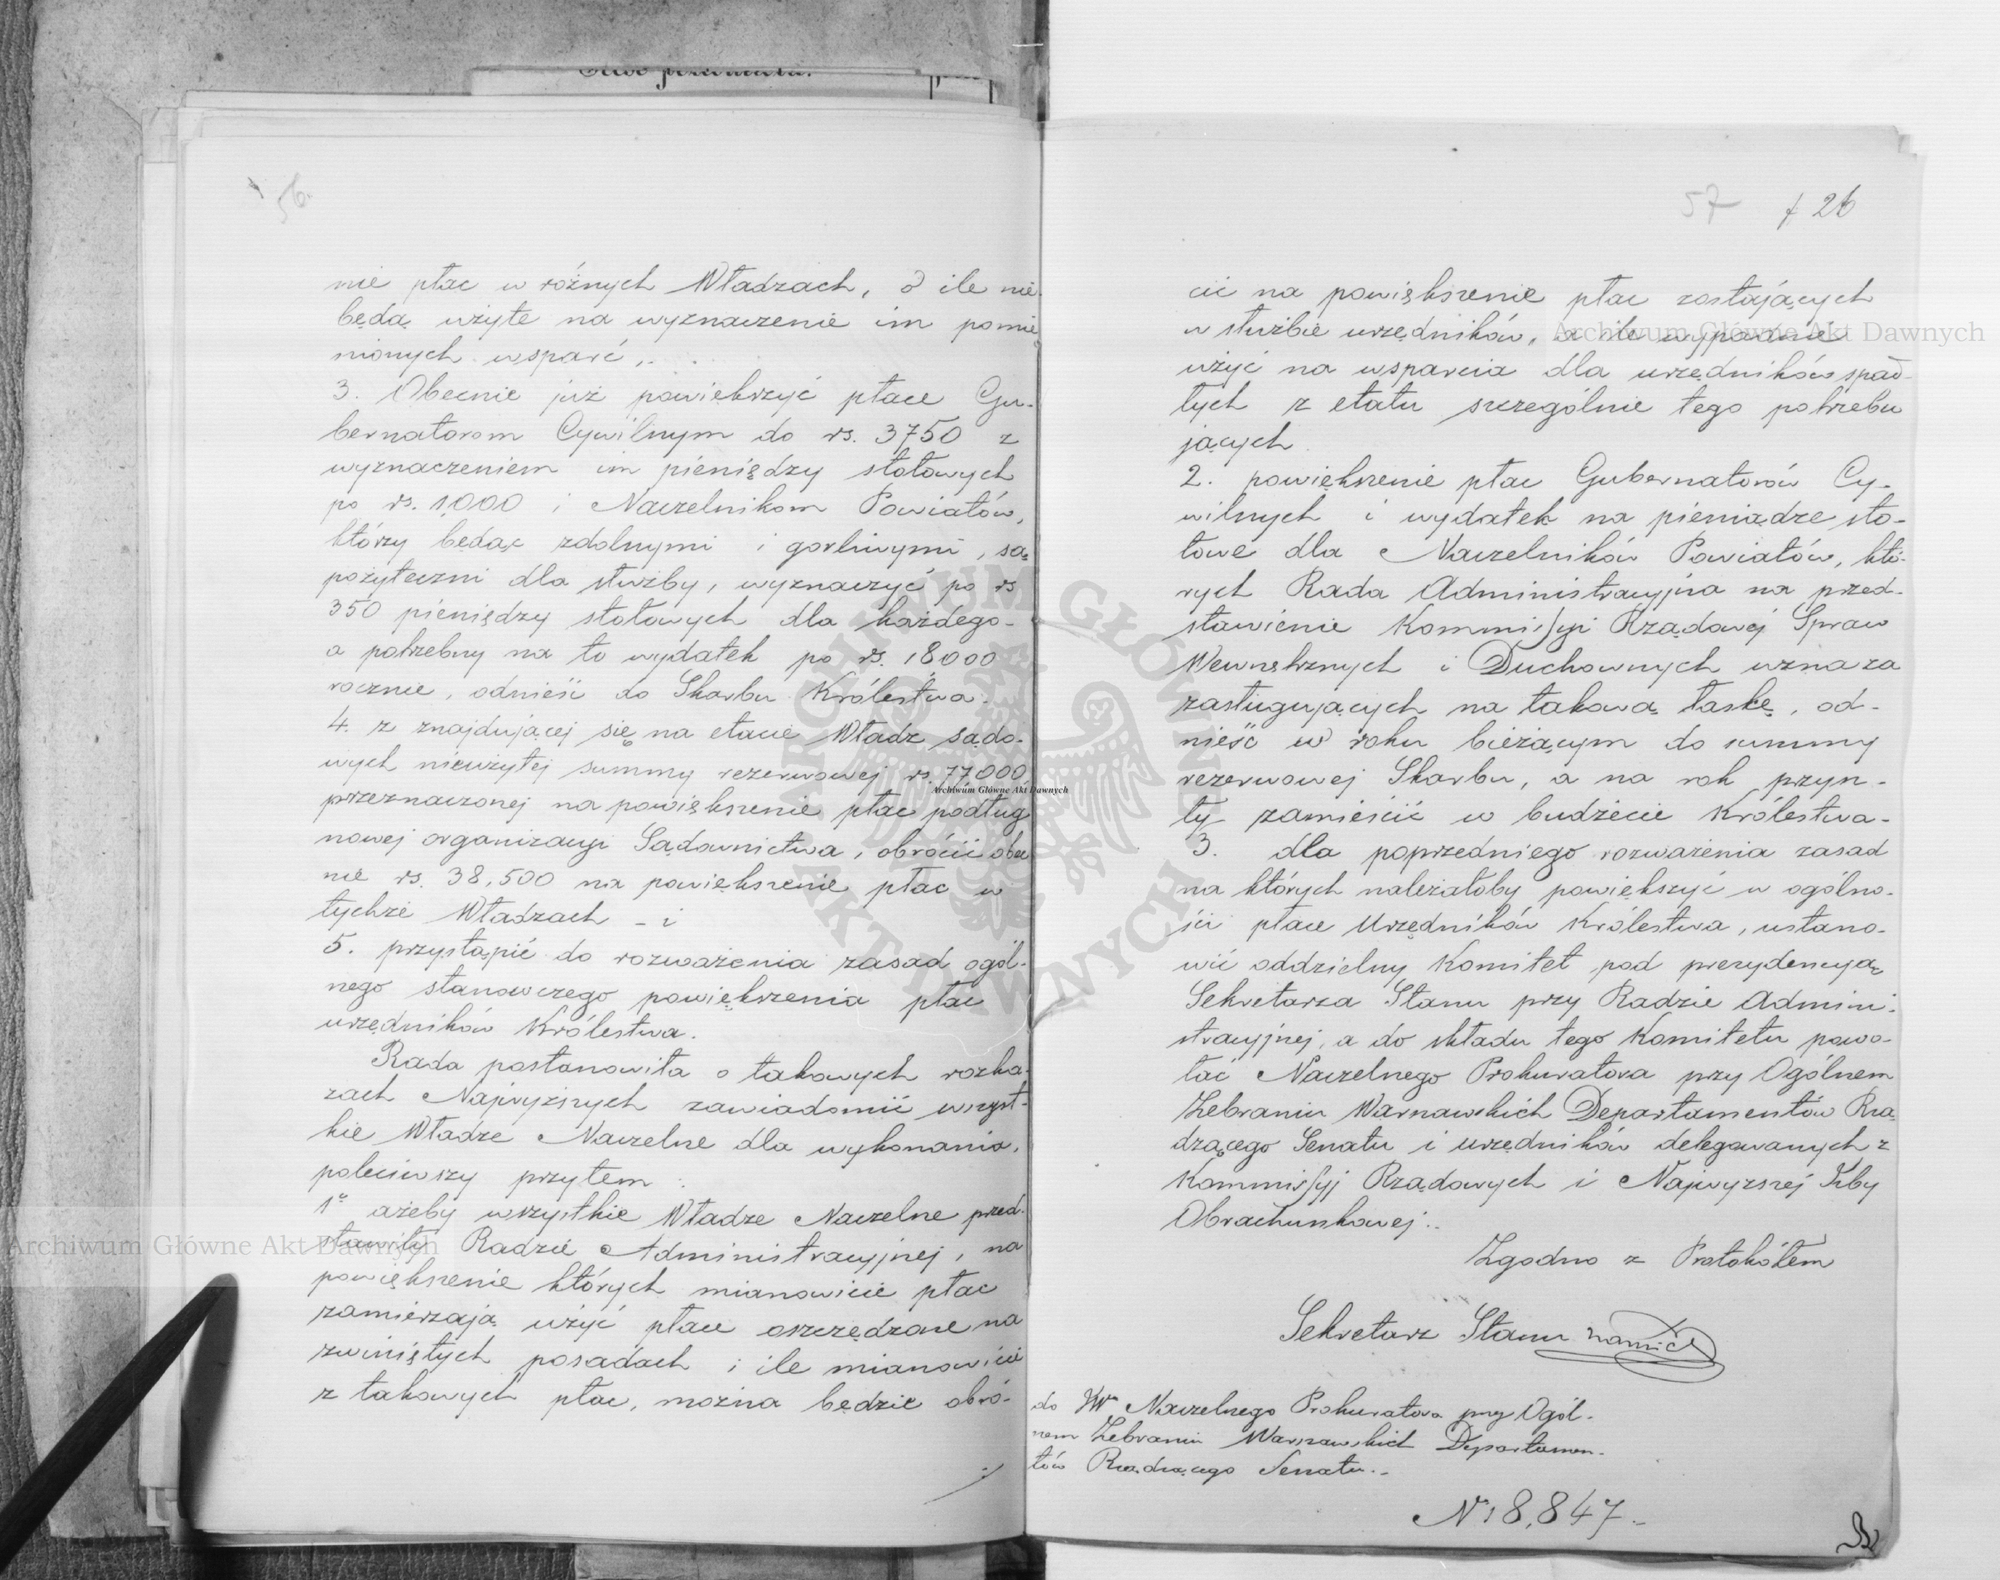 56.
nie płac w różnych Władzach, o ile nie
będą użyte na wyznaczenie im pomie
nionych wsparć,.
3. Obecnie już powiększyć płace Gu-
bernatorom Cywilnym do rs. 3750 z
wyznaczeniem im pieniędzy stołowych
po rs. 1,000 i Naczelnikom Powiatów,
którzy będąc zdolnymi i gorliwymi, są
pożyteczni dla służby, wyznaczyć po rs
350 pieniędzy stołowych dla każdego-
a potrzebny na to wydatek po rs. 18000
rocznie, odnieść do Skarbu Królestwa.
4. z znajdującej się na etacie Władz sądo-
wych nieużytej summy rezerwowej rs. 77,000
przeznaczonej na powiększenie płac podług
nowej organizacyi Sądownictwa, obrócić obec
nie rs. 38,500 na powiększenie płac w
tychże Władzach - i
5. przystąpić do rozważenia zasad ogól-
nego stanowczego powiększenia płac
urzędników Królestwa.
Rada postanowiła o takowych rozka-
zach Najwyższych zawiadomić wszyst-
kie Władze Naczelne dla wykonania,
poleciwszy przytem:
1° ażeby wszystkie Władze Naczelne przed-
stawiły Radzie Administracyjnej, na
powiększenie których mianowicie płac
zamierzają użyć płace oszczędzone na
zwiniętych posadach i ile mianowicie
z takowych płac, można będzie obró-
57 126
cić na powiększenie płac zostających
w służbie urzędników, a ile wypadnie
użyć na wsparcia dla urzędników spad-
łych z etatu szczególnie tego potrzebu
jących.
2. powiększenie płac Gubernatorów Cy-
wilnych i wydatek na pieniądze sto-
łowe dla Naczelników Powiatów, któ-
rych Rada Administracyjna na przed-
stawienie Kommissyi Rządowej Spraw
Wewnętrznych i Duchownych uzna za
zasługujących na takową łaskę, od-
nieść w roku bieżącym do summy
rezerwowej Skarbu, a na rok przy-
ty zamieścić w budżecie Królestwa-
3. dla poprzedniego rozważenia zasad
na których należałoby powiększyć w ogólno-
ści płace Urzędników Królestwa, ustano-
wić oddzielny Komitet pod prezydencyą
Sekretarza Stanu przy Radzie Admini-
stracyjnej, a do składu tego Komitetu powo-
łać Naczelnego Prokuratora przy Ogólnem
Zebraniu Warszawskich Departamentów Rzą
dzącego Senatu i urzędników delegowanych z
Kommissyj Rządowych i Najwyższej Izby
Obrachunkowej..
Zgodno z Protokółem
Sekretarz Stanu
do JW Naczelnego Prokuratora przy Ogól-
nem Zebraniu Warszawskich Departamen-
tów Rządzącego Senatu.-
N 18,847.-
Archiwum Główne Akt Dawnych
Archiwum Główne Akt Dawnych
Archiwum Główne Akt Dawnych
ARCHIWUM GŁÓWNE AKT DAWNYCH